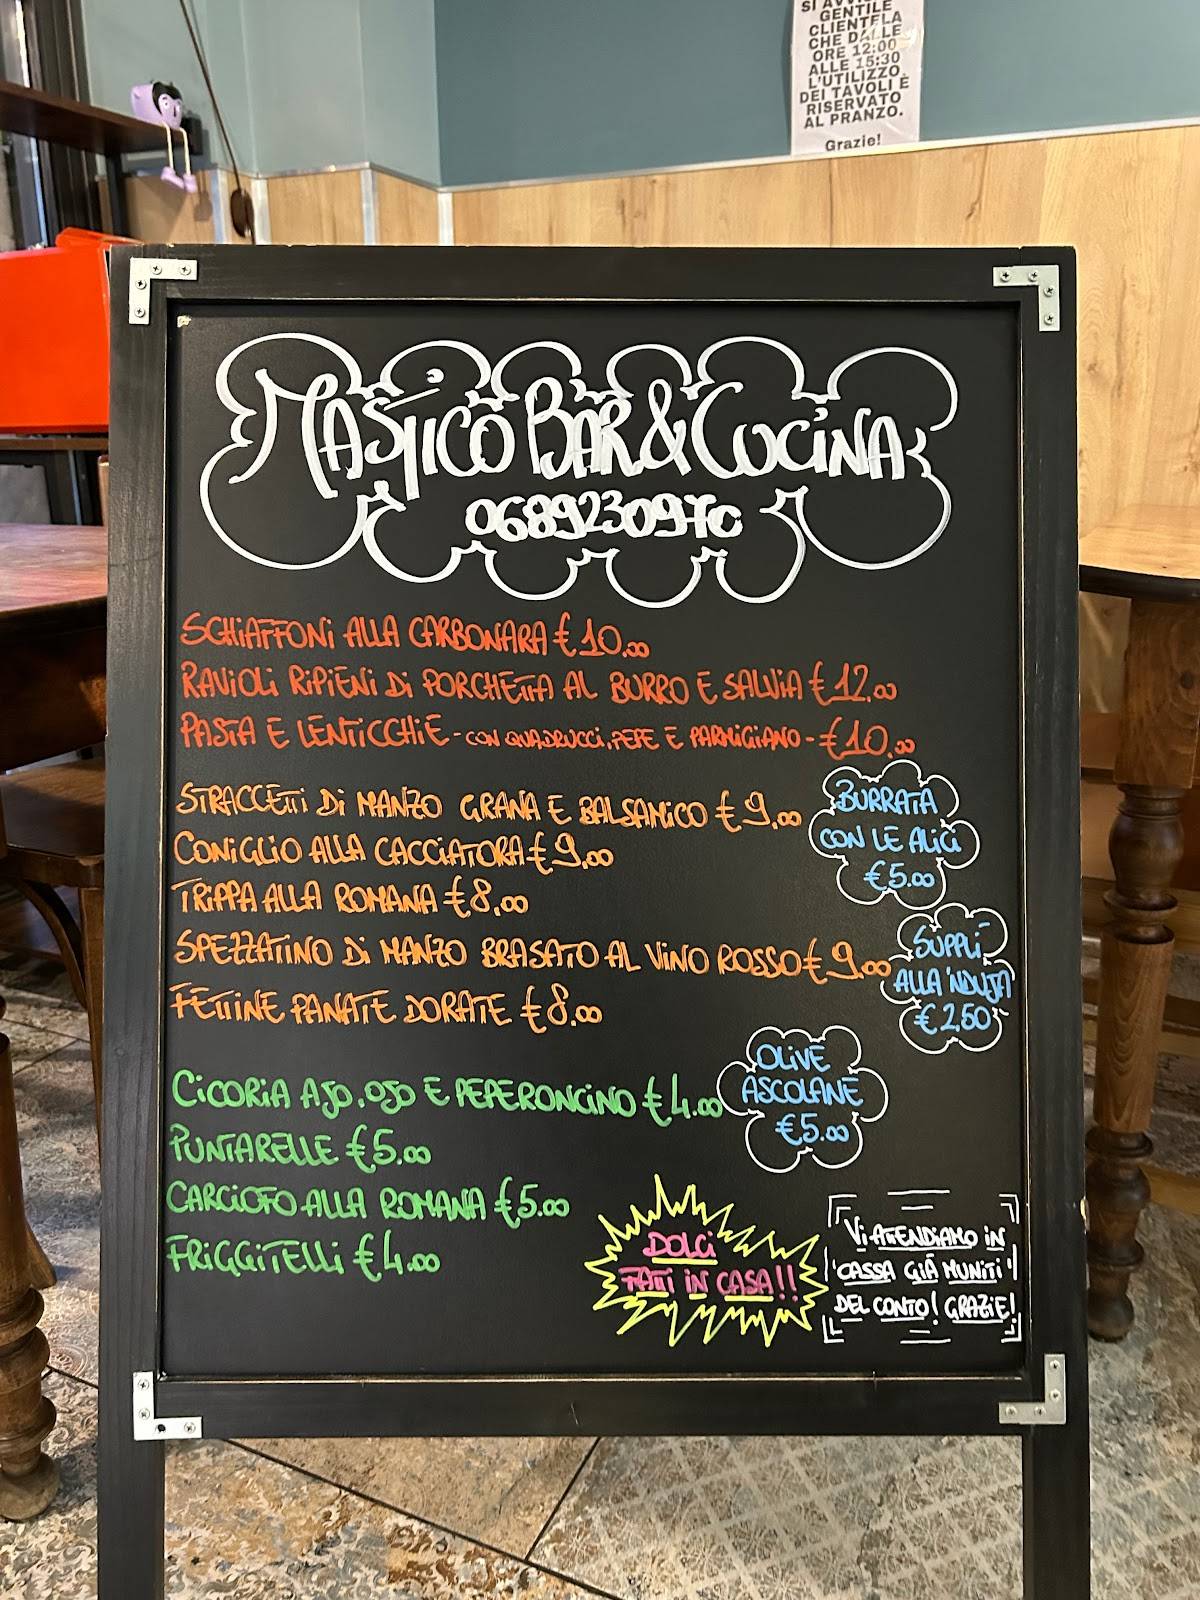 SI AVVISA
GENTILE
CLIENTELA
CHE DALLE
ORE 12:00
ALLE 15:30
L'UTILIZZO
DEI TAVOLI È
RISERVATO
AL PRANZO.
Grazie!
MASTICO BAR & CUCINA
0689230970
SCHIAFFONI ALLA CARBONARA € 10.00
RAVIOLI RIPIENI DI PORCHETTA AL BURRO E SALVIA € 12.00
PASTA E LENTICCHIE - CON QUADRUCCI, PEPE E PARMIGIANO - € 10.00
STRACCETTI DI MANZO GRANA E BALSAMICO € 9.00
CONIGLIO ALLA CACCIATORA € 9.00
TRIPPA ALLA ROMANA € 8.00
SPEZZATINO DI MANZO BRASATO AL VINO ROSSO € 9.00
FETTINE PANATE DORATE € 8.00
BURRATA
CON LE ALICI
€ 5.00
SUPPLÌ
ALLA 'NDUJA
€ 2,50
OLIVE
ASCOLANE
€ 5.00
CICORIA AJO, OJO E PEPERONCINO € 4.00
PUNTARELLE € 5.00
CARCIOFO ALLA ROMANA € 5.00
FRIGGITELLI € 4.00
DOLCI
FATTI IN CASA!!
VI ATTENDIAMO IN
CASSA GIÀ MUNITI
DEL CONTO! GRAZIE!